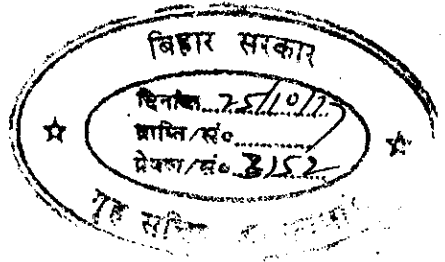 बिहार सरकार
दिनांक 25/10/7
प्राप्ति/सं०
प्रेषण/सं० 3152
गृह सचिव